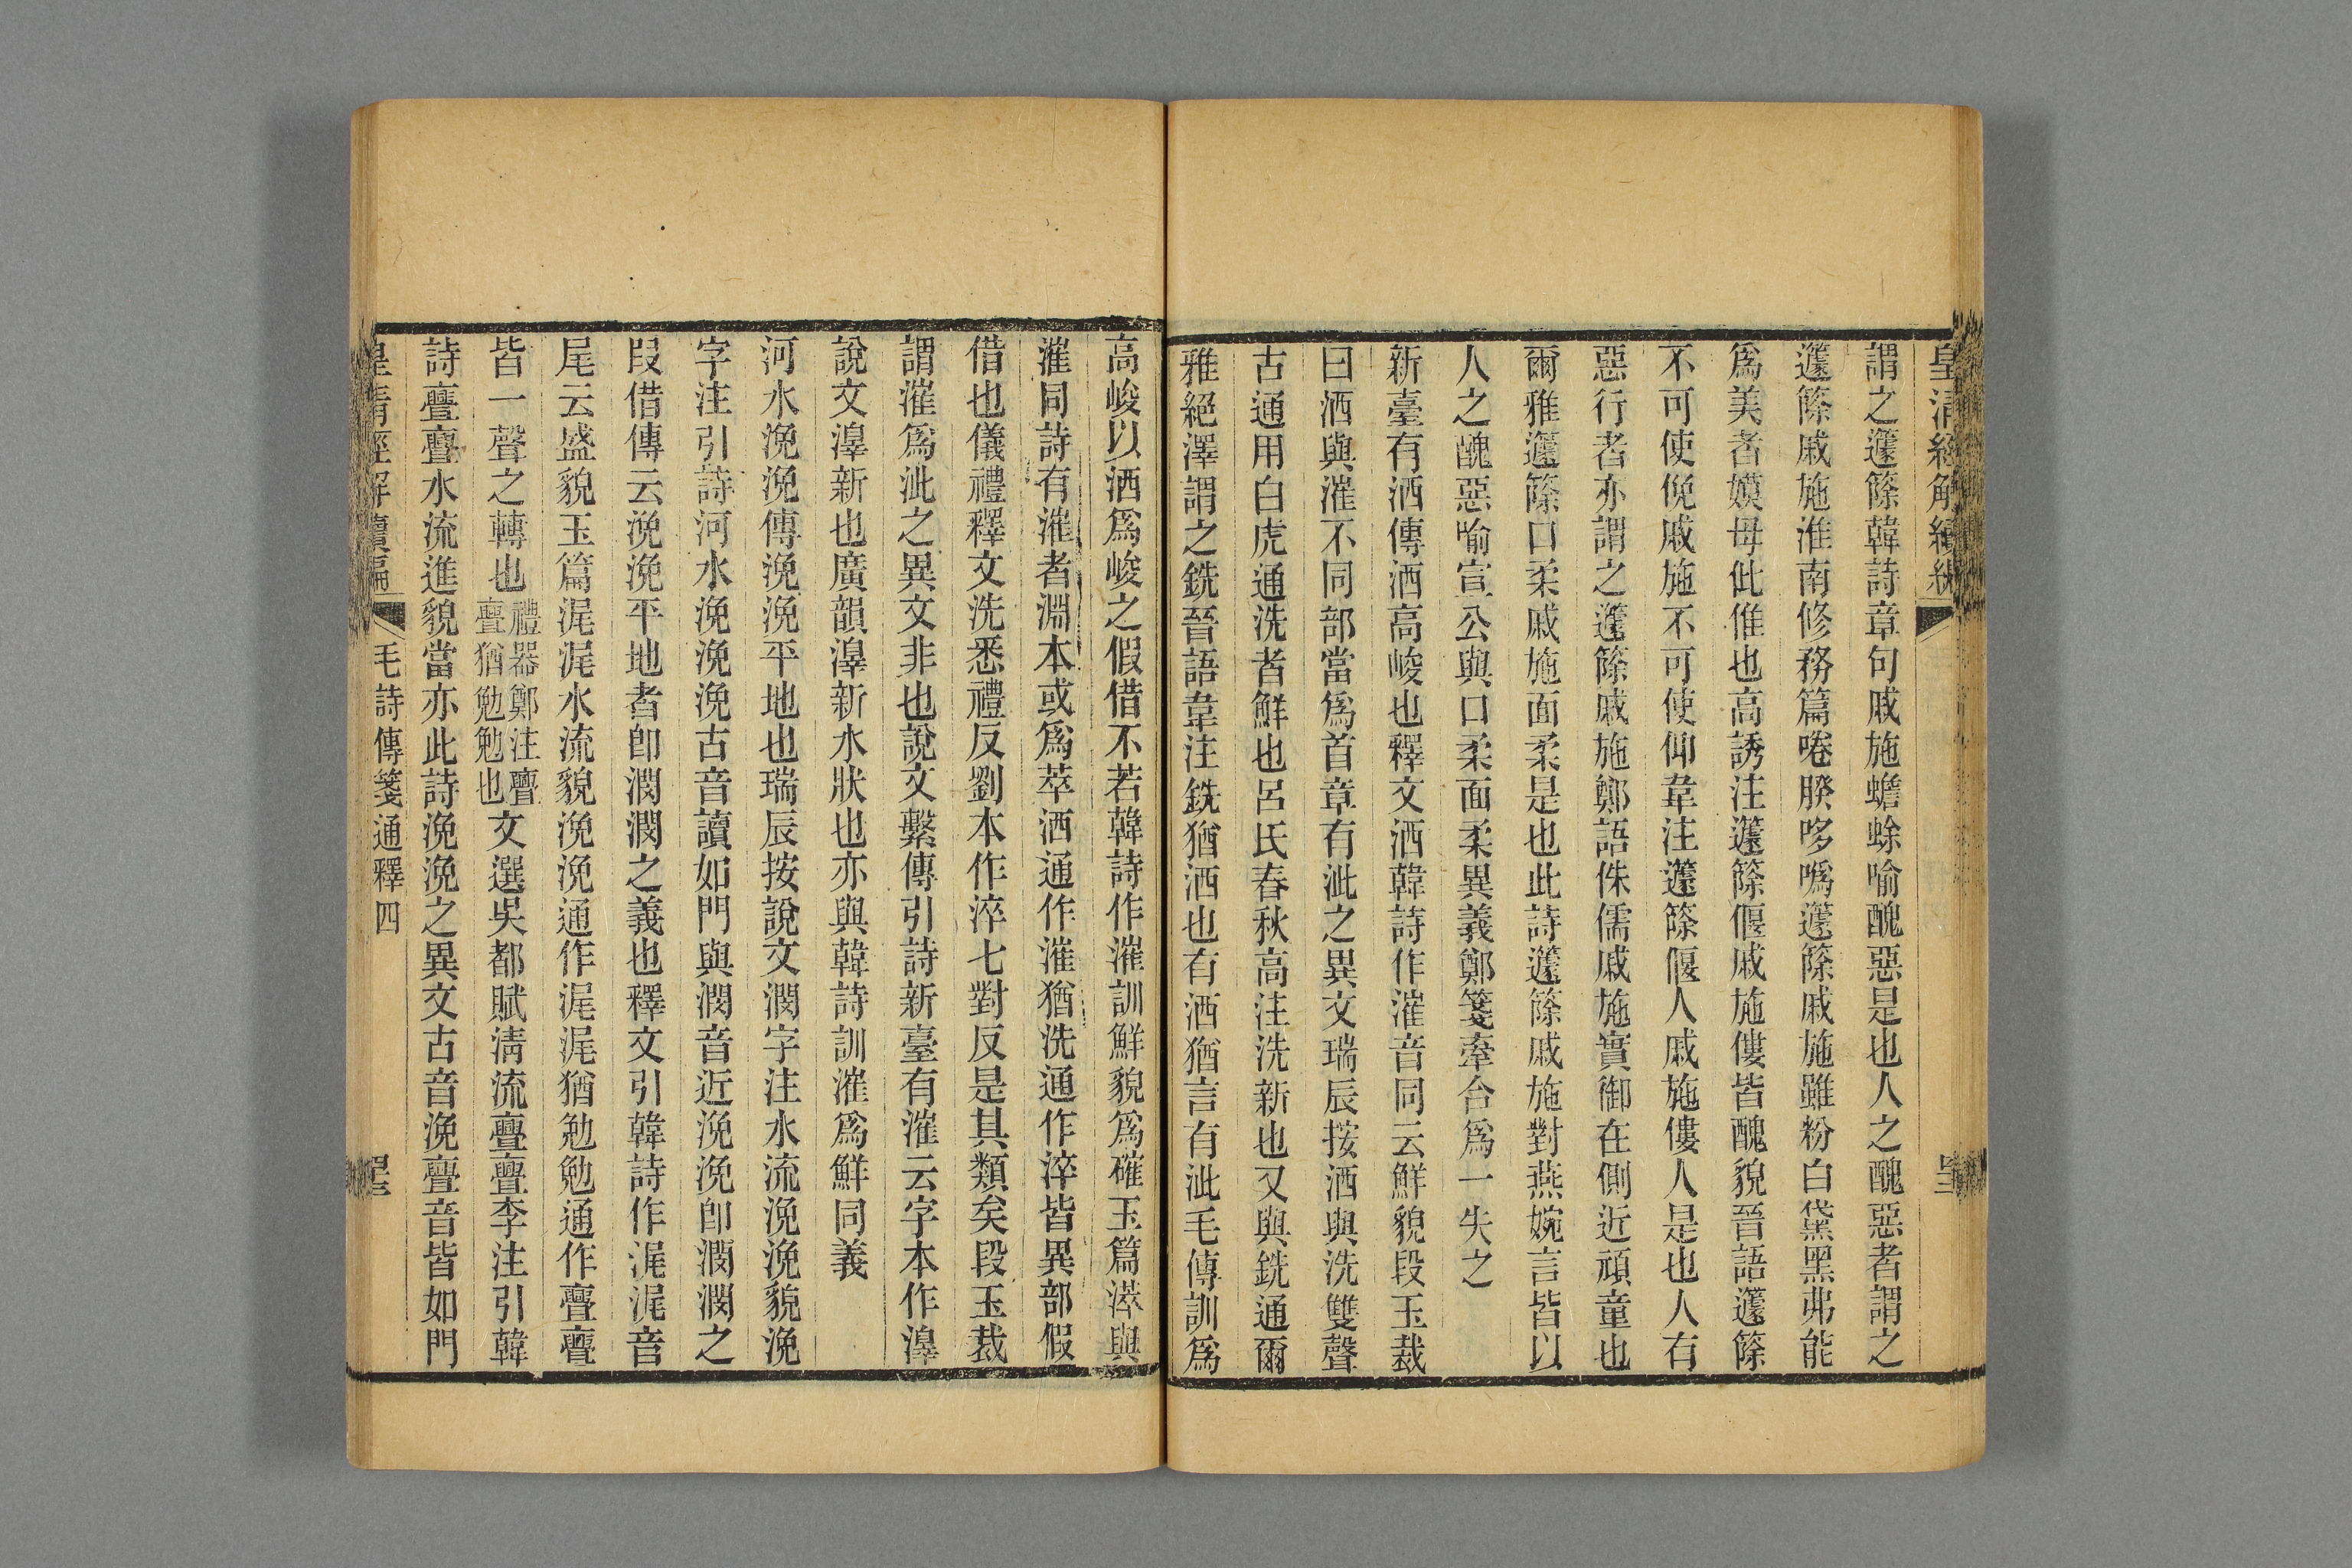 皇清經解續編
謂之籧篨韓詩章句戚施蟾蜍喻醜惡是也人之醜惡者謂之
籧篨戚施淮南修務篇啳腃哆噅籧篨戚施雖粉白黛黑弗能
爲美者嫫母仳倠也高誘注籧篨偃戚施僂皆醜貌晉語籧篨
不可使俛戚施不可使仰韋注籧篨偃人戚施僂人是也人有
惡行者亦謂之籧篨戚施鄭語侏儒戚施實御在側近頑童也
爾雅籧篨口柔戚施面柔是也此詩籧篨戚施對燕婉言皆以
人之醜惡喻宣公與口柔面柔異義鄭箋牽合爲一失之
新臺有洒傳洒高峻也釋文洒韓詩作漼音同云鮮貌段玉裁
曰洒與漼不同部當爲首章有泚之異文瑞辰按洒與洗雙聲
古通用白虎通洗者鮮也呂氏春秋高注洗新也又與銑通爾
雅絕澤謂之銑晉語韋注銑猶洒也有洒猶言有泚毛傳訓爲
高峻以洒爲峻之假借不若韓詩作漼訓鮮貌爲確玉篇漼與
漼同詩有漼者淵本或爲萃洒通作漼猶洗通作淬皆異部假
借也儀禮釋文洗悉禮反劉本作淬七對反是其類矣段玉裁
謂漼爲泚之異文非也說文繫傳引詩新臺有漼云字本作濢
說文濢新也廣韻濢新水狀也亦與韓詩訓漼爲鮮同義
河水浼浼傳浼浼平地也瑞辰按說文潣字注水流浼浼貌浼
字注引詩河水浼浼浼古音讀如門與潣音近浼浼卽潣潣之
叚借傳云浼浼平地者卽潣潣之義也釋文引韓詩作浘浘音
尾云盛貌玉篇浘浘水流貌浼浼通作浘浘猶勉勉通作亹亹
皆一聲之轉也禮器鄭注亹亹猶勉勉也文選吳都賦淸流亹亹李注引韓
詩亹亹水流進貌當亦此詩浼浼之異文古音浼亹音皆如門
皇清經解續編 毛詩傳箋通釋四